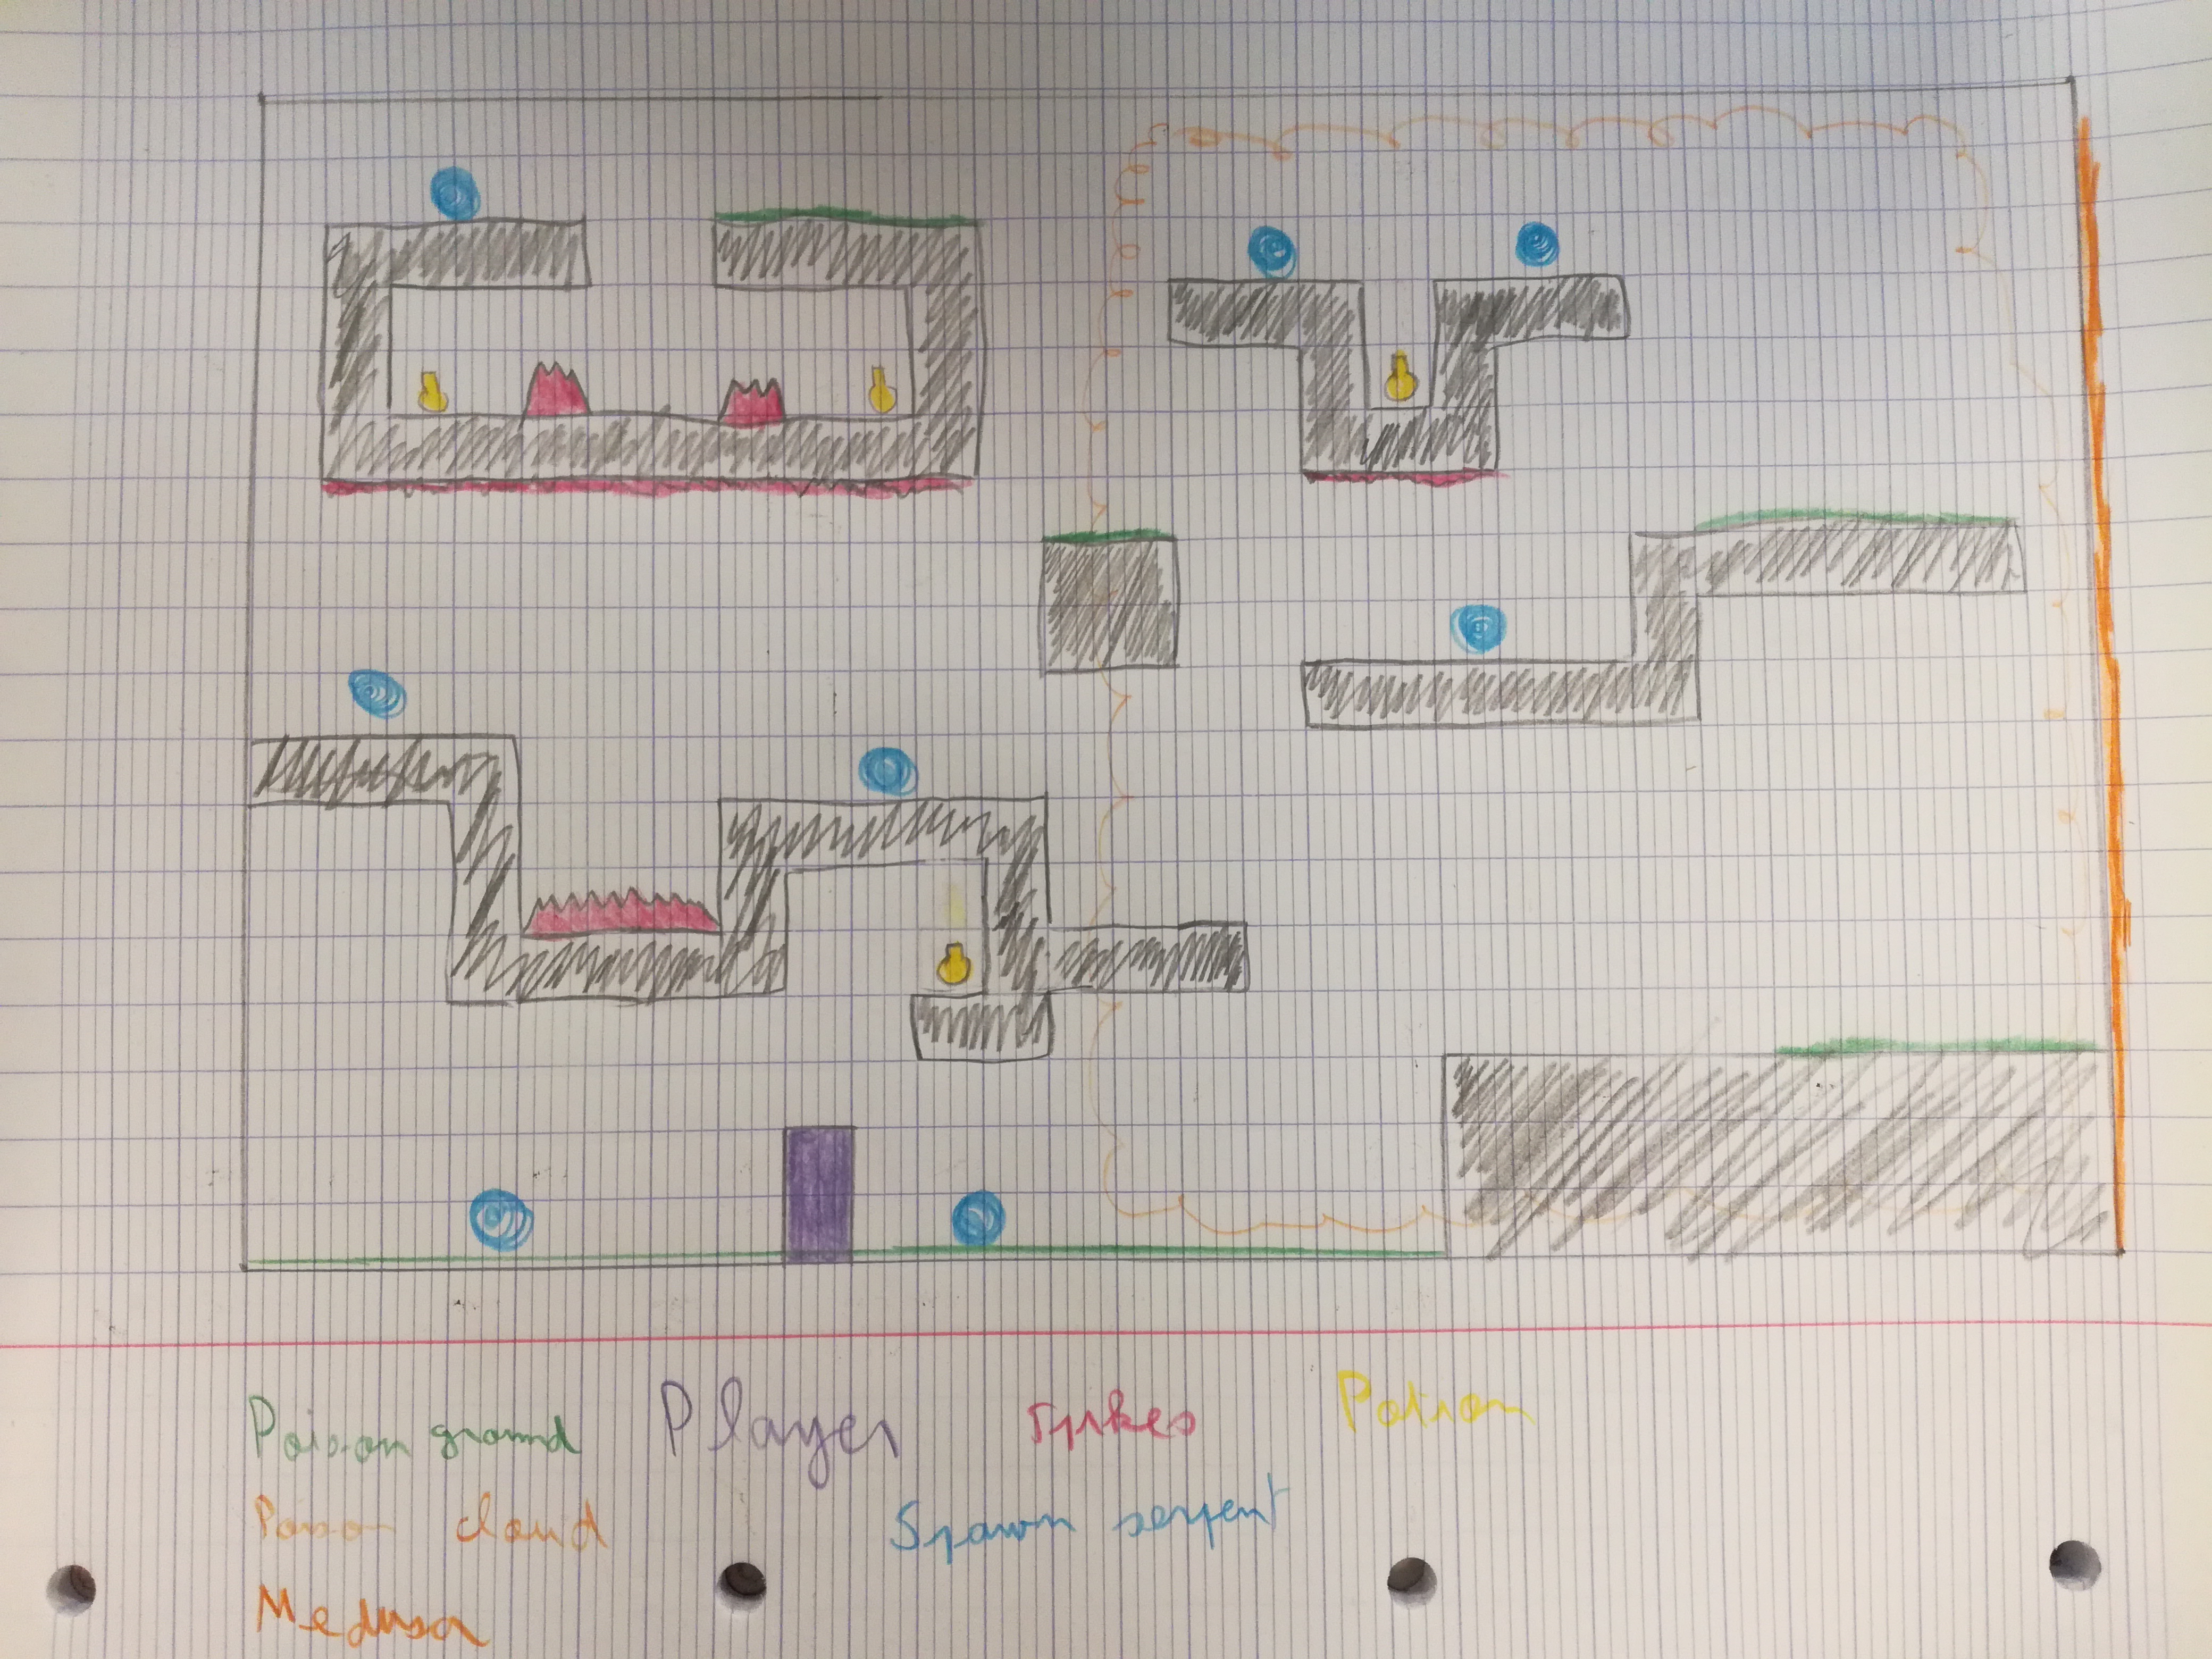 Poison ground Player Spikes Potion
Poison cloud Spawn serpent
Medusa